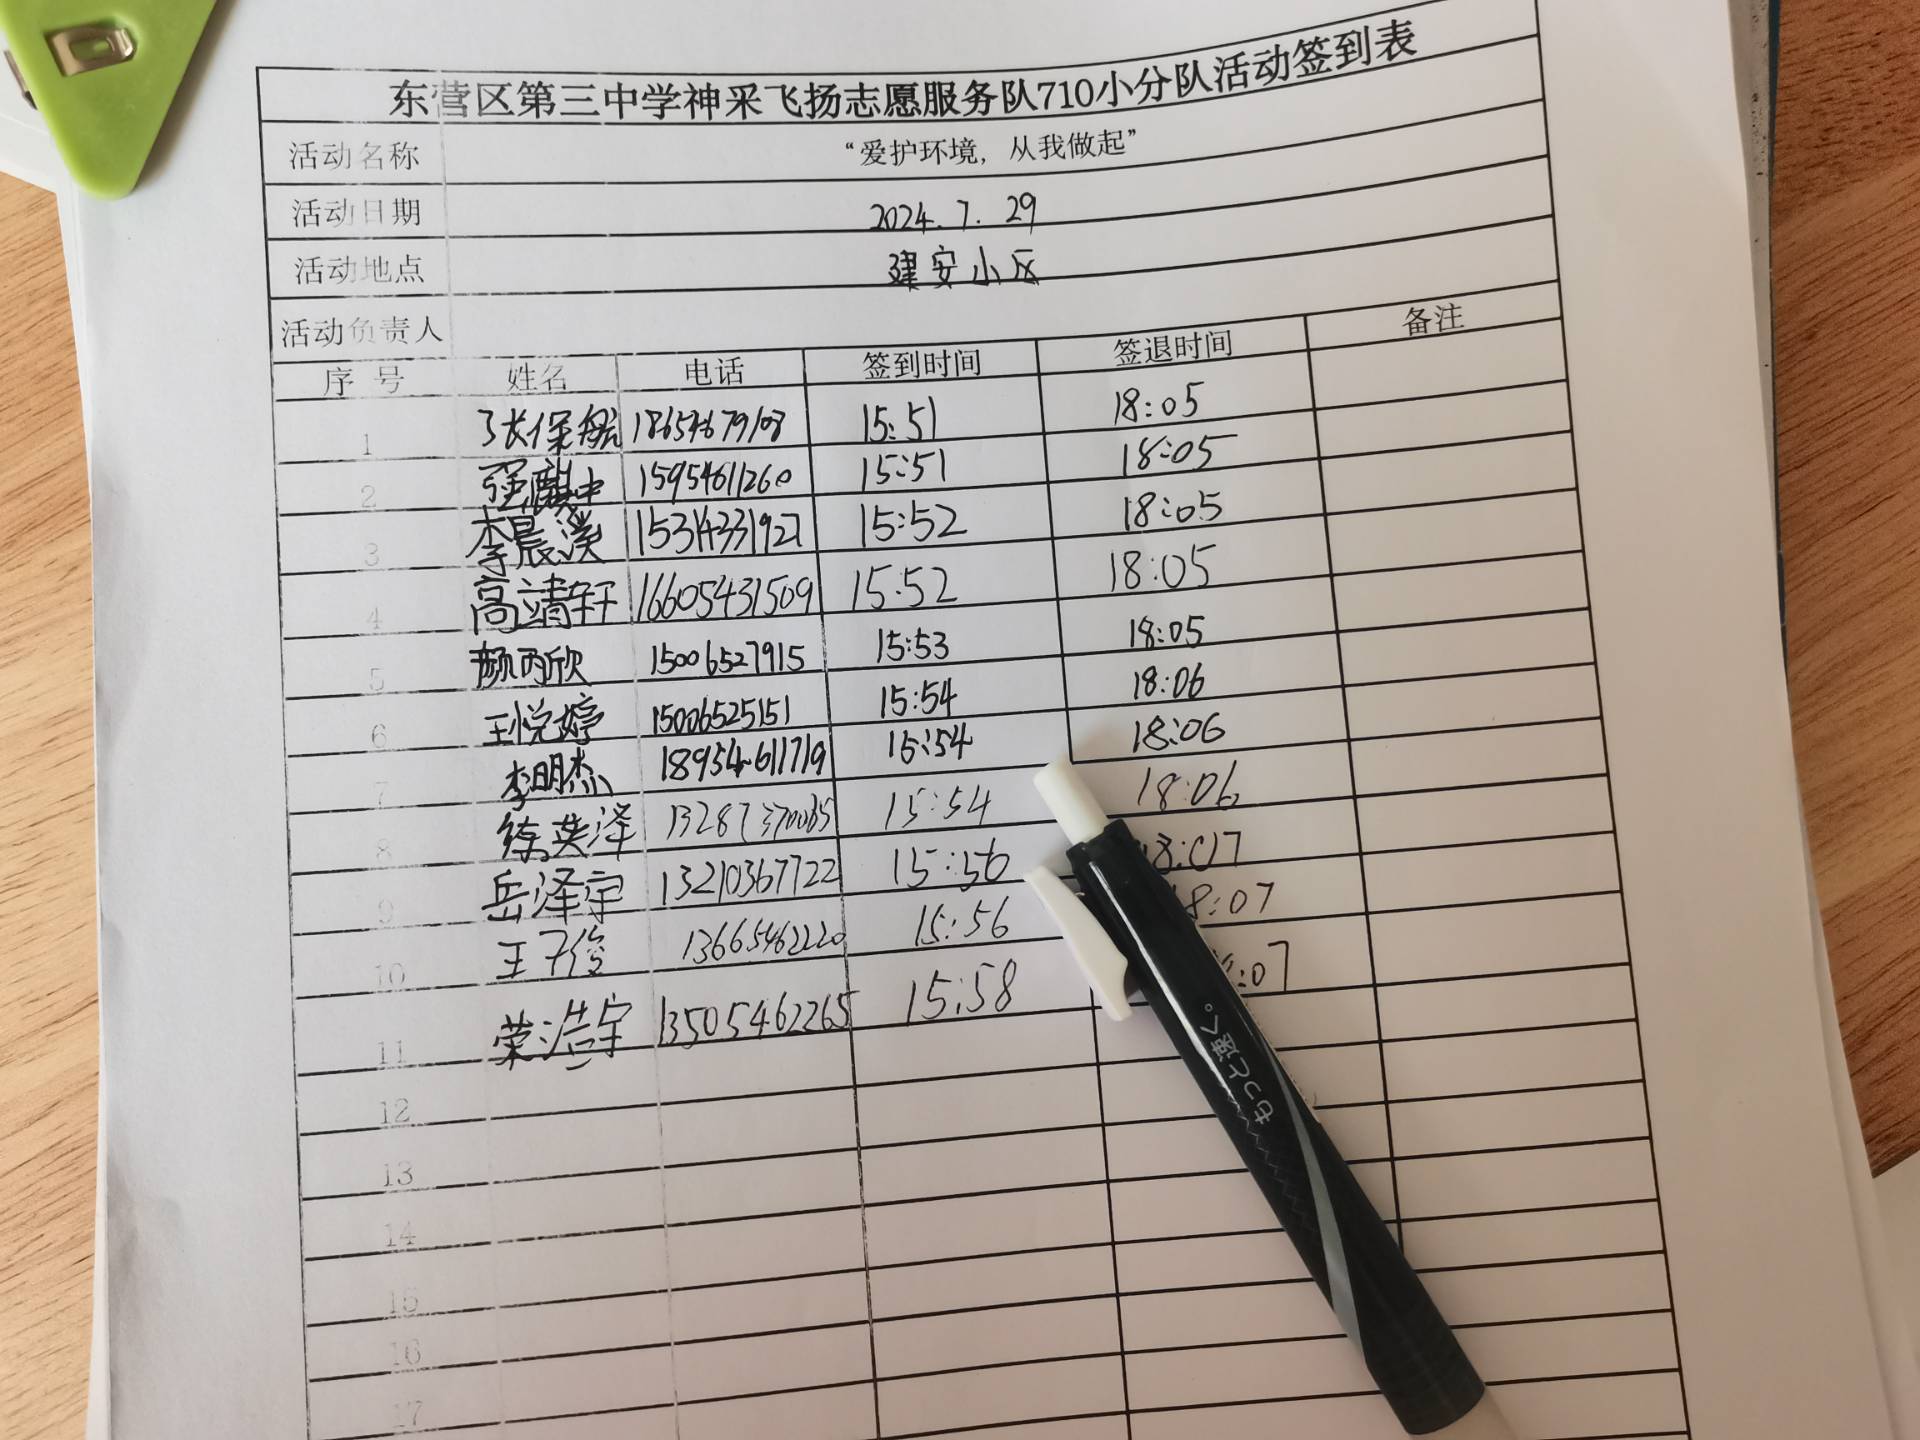 东营区第三中学神采飞扬志愿服务队710小分队活动签到表
活动名称 “爱护环境，从我做起”
活动日期 2024.7.29
活动地点 建安小区
活动负责人
序号 姓名 电话 签到时间 签退时间 备注
1 张保航 18654679108 15:51 18:05
2 强麒中 15954611260 15:51 18:05
3 李晨溪 15314331927 15:52 18:05
4 高靖轩 16605431509 15:52 18:05
5 颜丙欣 15006527915 15:53 18:05
6 王悦婷 15006525151 15:54 18:06
7 李明杰 18954611719 15:54 18:06
8 徐英泽 13287370085 15:54 18:06
9 岳泽宇 13210367722 15:56 18:07
10 王子俊 13665462220 15:56 8:07
11 荣浩宇 13505462265 15:58 :07
12
13
14
15
16
17
速く。